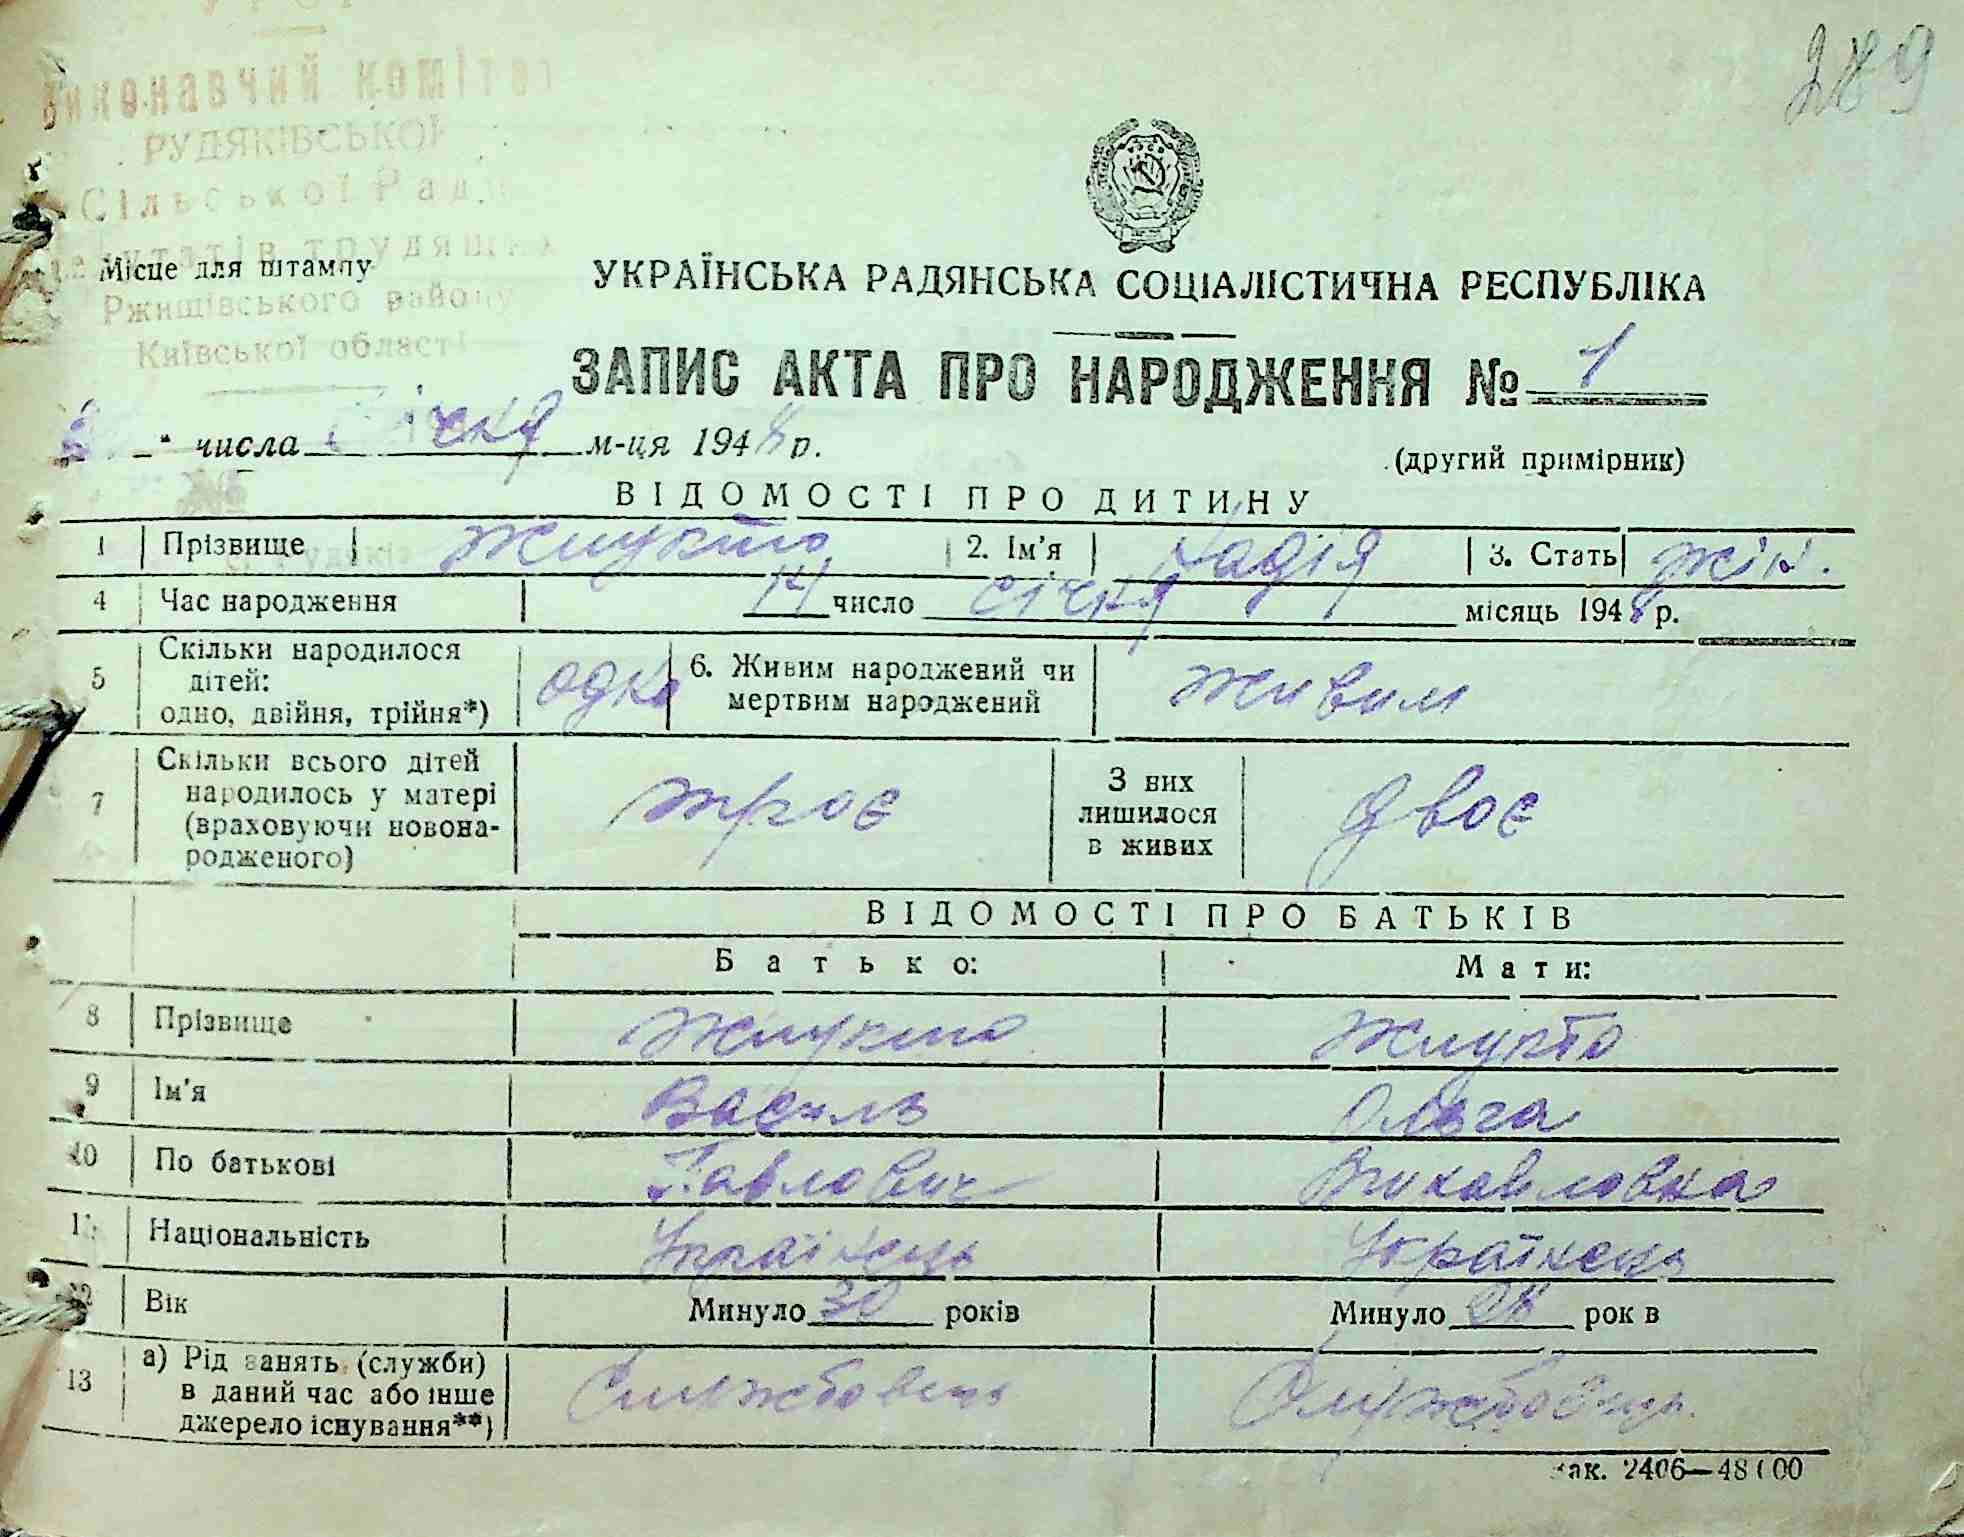 289
УРСР
Виконавчий комітет
РУДЯКІВСЬКОЇ
Сільської Ради
депутатів трудящих
Місце для штампу
Ржищівського району
Київської області
УКРАЇНСЬКА РАДЯНСЬКА СОЦІАЛІСТИЧНА РЕСПУБЛІКА
ЗАПИС АКТА ПРО НАРОДЖЕННЯ № 1
" числа січня м-ця 1948 р.
(другий примірник)
ВІДОМОСТІ ПРО ДИТИНУ
1 Прізвище Жлукто 2. Ім'я Надія 3. Стать жін.
4 Час народження 14 число січня місяць 1948 р.
5 Скільки народилося дітей: одно, двійня, трійня*) одно 6. Живим народжений чи мертвим народжений живим
7 Скільки всього дітей народилось у матері (враховуючи новонародженого) троє З них лишилося в живих двоє
ВІДОМОСТІ ПРО БАТЬКІВ
Батько: Мати:
8 Прізвище Жлукто Жлукто
9 Ім'я Василь Ольга
10 По батькові Павлович Михайловна
11 Національність Українець Українець
12 Вік Минуло 30 років Минуло 28 рок в
13 а) Рід занять (служби) в даний час або інше джерело існування**) Службовець Службовець.
Зак. 2406—48100